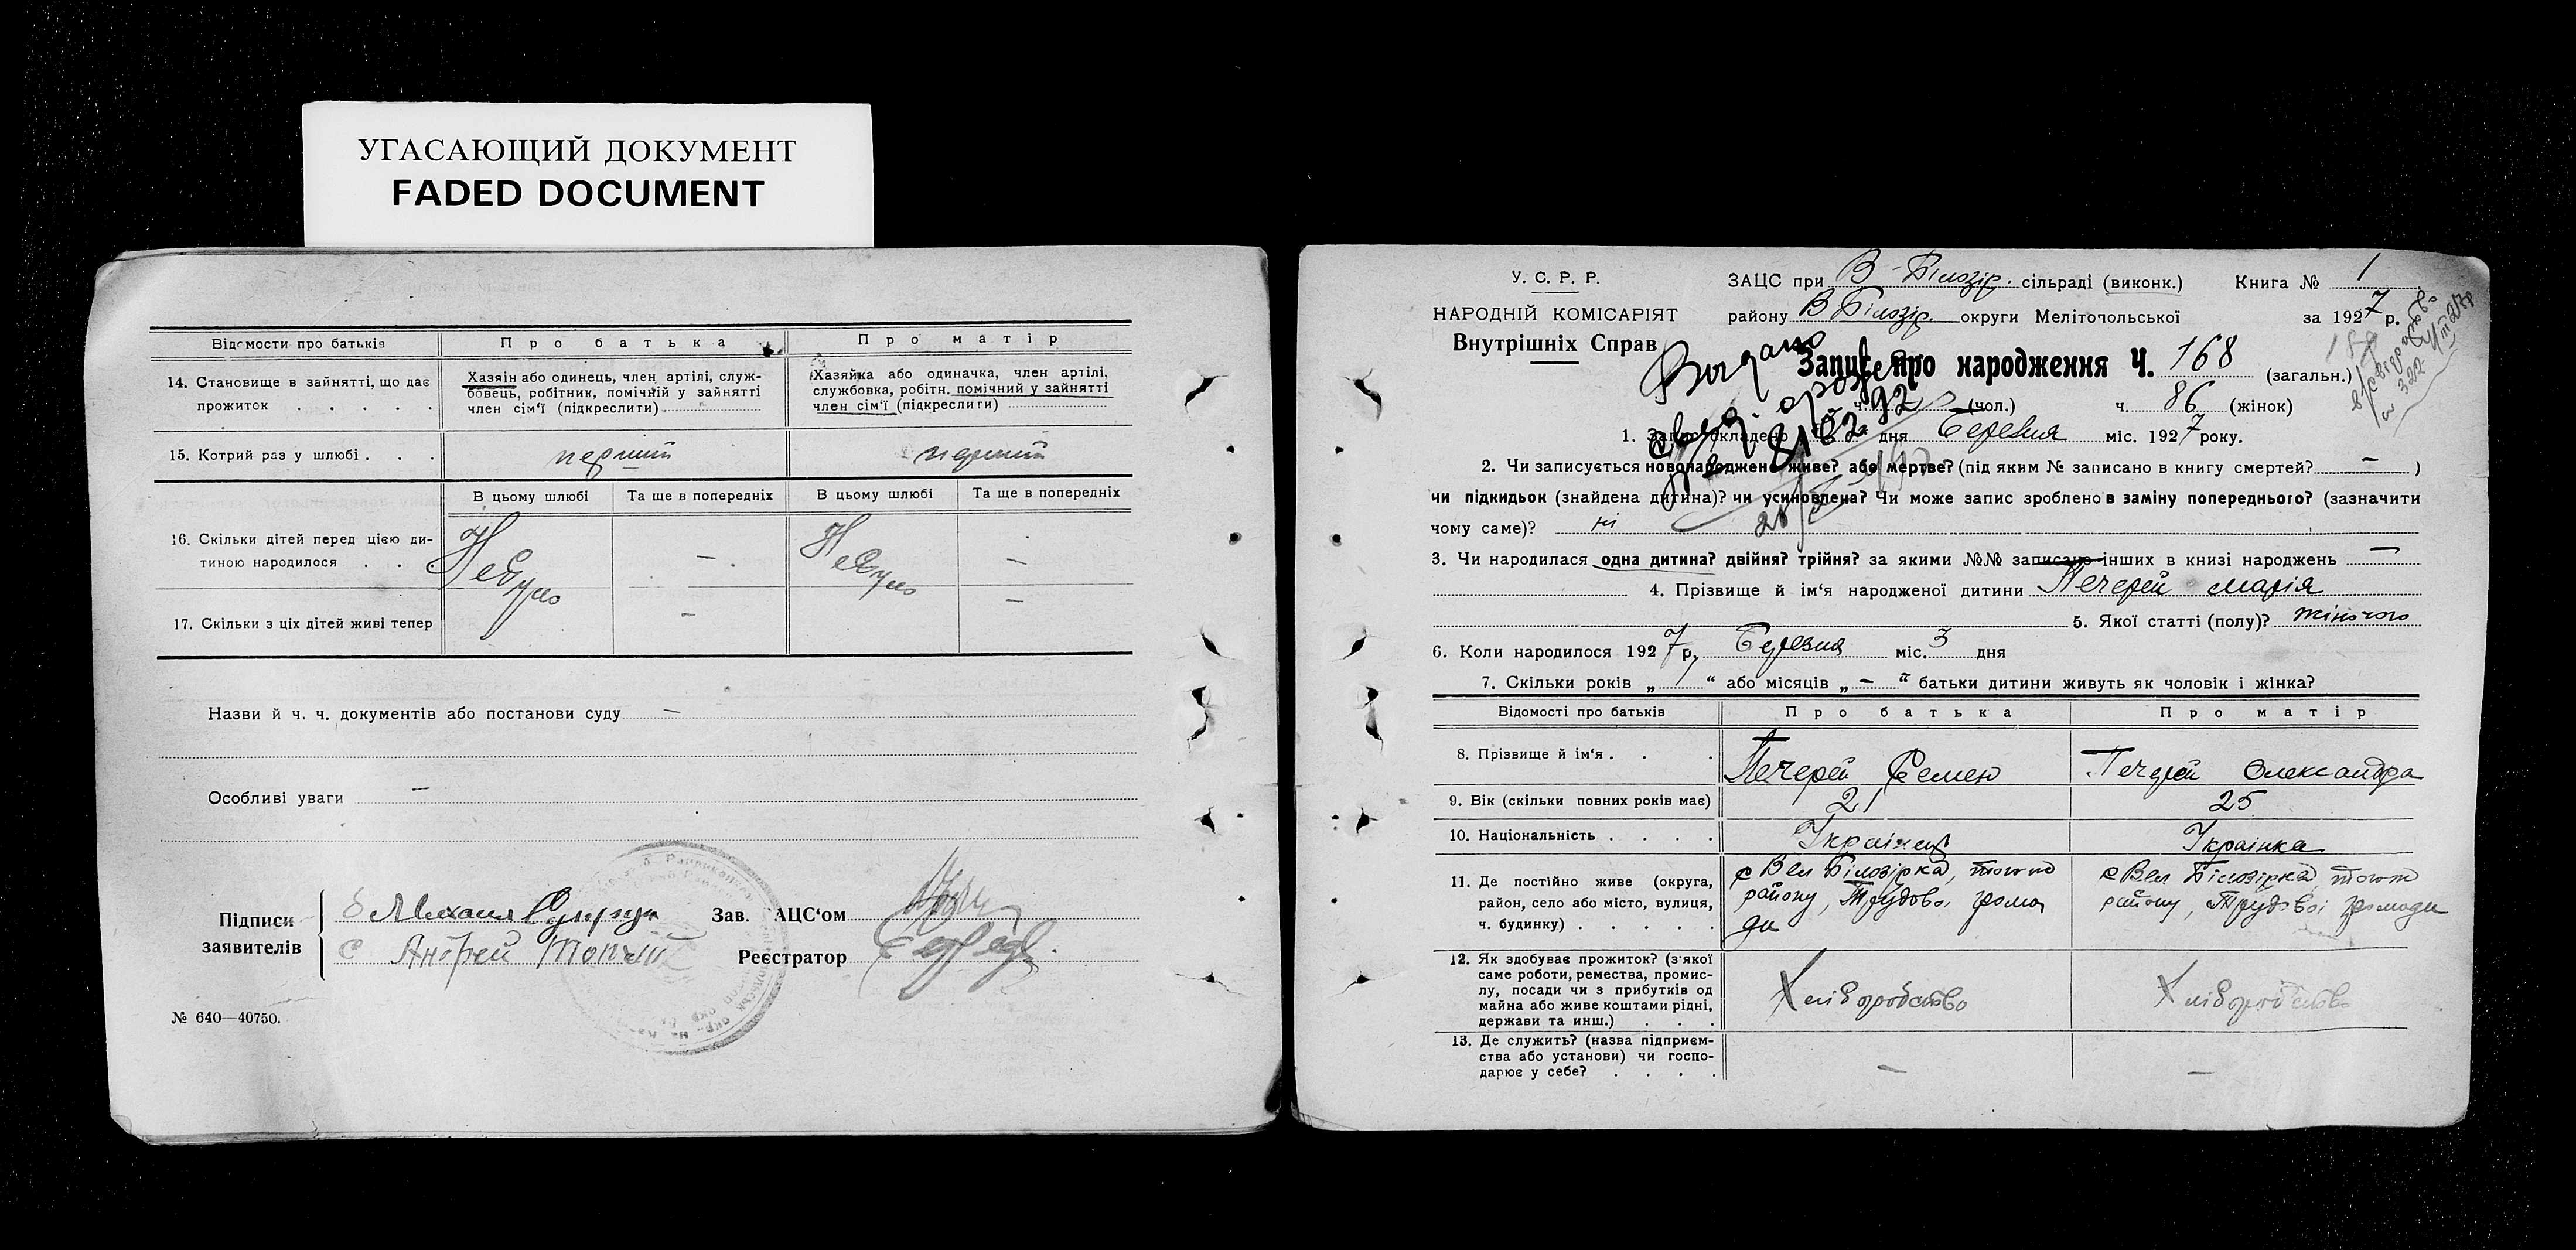 УГАСАЮЩИЙ ДОКУМЕНТ
FADED DOCUMENT
Відомости про батьків
Про батька
Про матір
14. Становище в зайнятті, що дає прожиток . . . . .
Хазяін або одинець, член артілі, служ-
бовець, робітник, помічній у зайнятті
член сім'ї (підкреслити)
Хазяйка або одиначка, член артілі,
службовка, робітн. помічний у зайнятті
член сім'ї (підкреслити)
15. Котрий раз у шлюбі . . .
перший
перший
В цьому шлюбі
Та ще в попередніх
В цьому шлюбі
Та ще в попередніх
16. Скільки дітей перед цією ди-
тиною народилося . . .
Небуло
—
Небуло
—
17. Скільки з ціх дітей живі тепер
—
—
Назви й ч. ч. документів або постанови суду —
Особливі уваги —
Підписи
заявителів
Михаил
Андрей Топчий
Зав. АЦС'ом
Реєстратор
№ 640—40750.
У. С. Р. Р.
НАРОДНІЙ КОМІСАРІЯТ
Внутрішніх Справ
ЗАЦС при В-Білозір. сільраді (виконк.)
Книга № 1
району В Білозір. округи Мелітопольської
за 1927 р.
Запис про народження Ч. 168 (загальн.)
ч. (чол.)
ч. 86 (жінок)
1. Запис складено дня Березня міс. 1927 року.
2. Чи записується новонароджене живе? або мертве? (під яким № записано в книгу смертей? — )
чи підкидьок (знайдена дитина)? чи усиновлена? Чи може запис зроблено в заміну попереднього? (зазначити
чому саме)? ні
3. Чи народилася одна дитина? двійня? трійня? за якими №№ записано інших в книзі народжень —
4. Прізвище й ім'я народженої дитини Печерей Марія
5. Якої статті (полу)? жіночого
6. Коли народилося 1927 р. Березня міс. 3 дня
7. Скільки років „ 1 “ або місяців „ — “ батьки дитини живуть як чоловік і жінка?
Відомості про батьків
Про батька
Про матір
8. Прізвище й ім'я . . .
Печерей Семен
Печерей Олександра
9. Вік (скільки повних років має)
21
25
10. Національність . . . .
Українец
Українка
11. Де постійно живе (округа,
район, село або місто, вулиця,
ч. будинку) . . . . .
с Вел Білозірка, того ж
району, Трудової грома
ди
с Вел Білозірка того ж
району, Трудової громади
12. Як здобуває прожиток? (з якої
саме роботи, ремества, промис-
лу, посади чи з прибутків од
майна або живе коштами рідні,
держави та инш.) . . .
Хліборобство
Хліборобство
13. Де служить? (назва підприєм-
ства або установи) чи госпо-
дарює у себе? . . . .
—
—